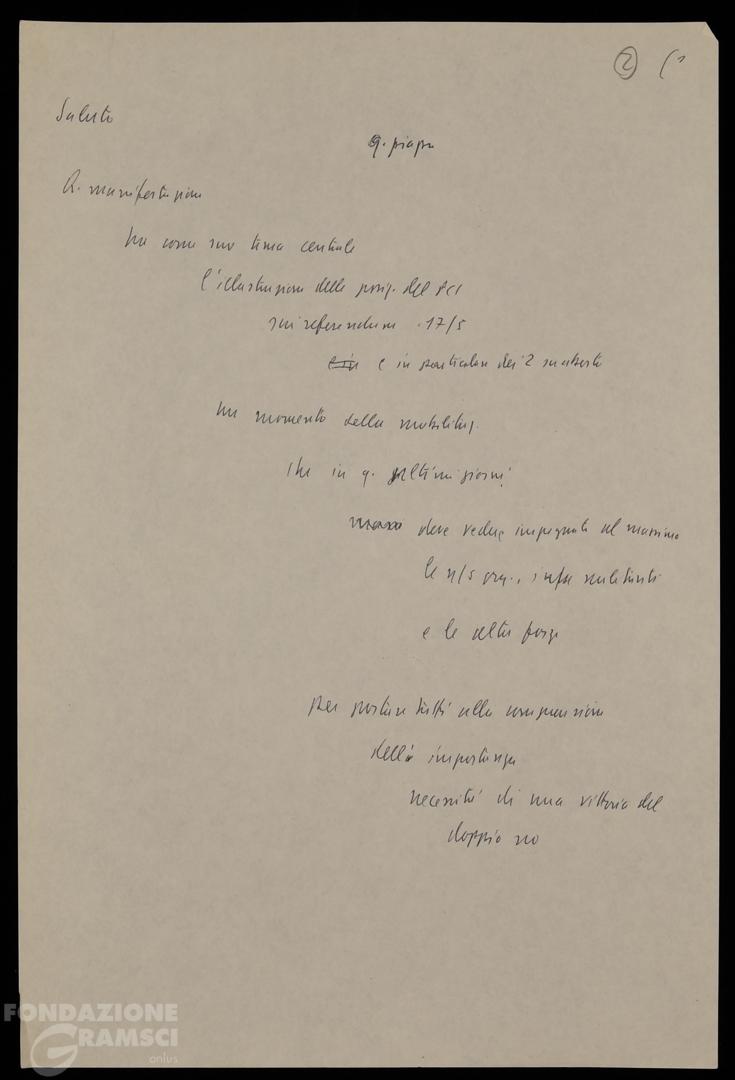 ② (1
Saluto
q. piazza
Q. manifestazione
ha come suo tema centrale
l'illustrazione delle posiz. del PCI
sui referendum 17/5
e in e in particolare dei 2 su aborto
un momento della mobilitaz.
che in q. ultimi giorni
deve vedere impegnati al massimo
le n/s org., i nostri militanti
e le altre forze
per portare tutti alla comprensione
della importanza
necessità di una vittoria del
doppio no
FONDAZIONE
GRAMSCI
onlus